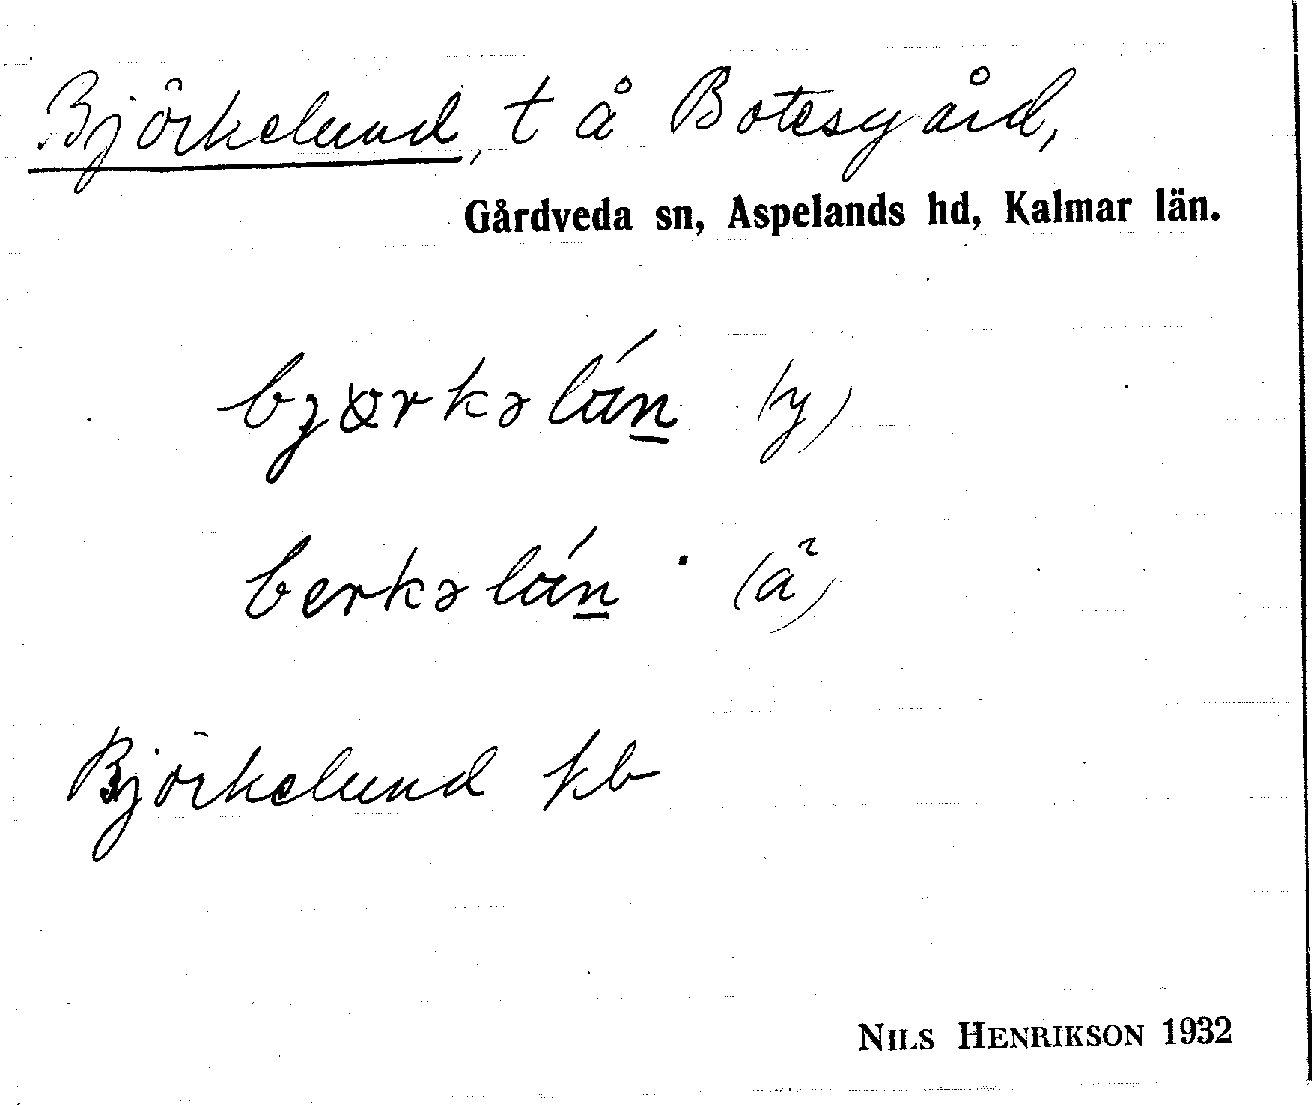 Björkelund, t å Botesgård,
Gårdveda sn, Aspelands hd, Kalmar län.
bjørkəlún̲ (y)
berkəlún̲ (ä)
Björkelund kb
NILS HENRIKSON 1932